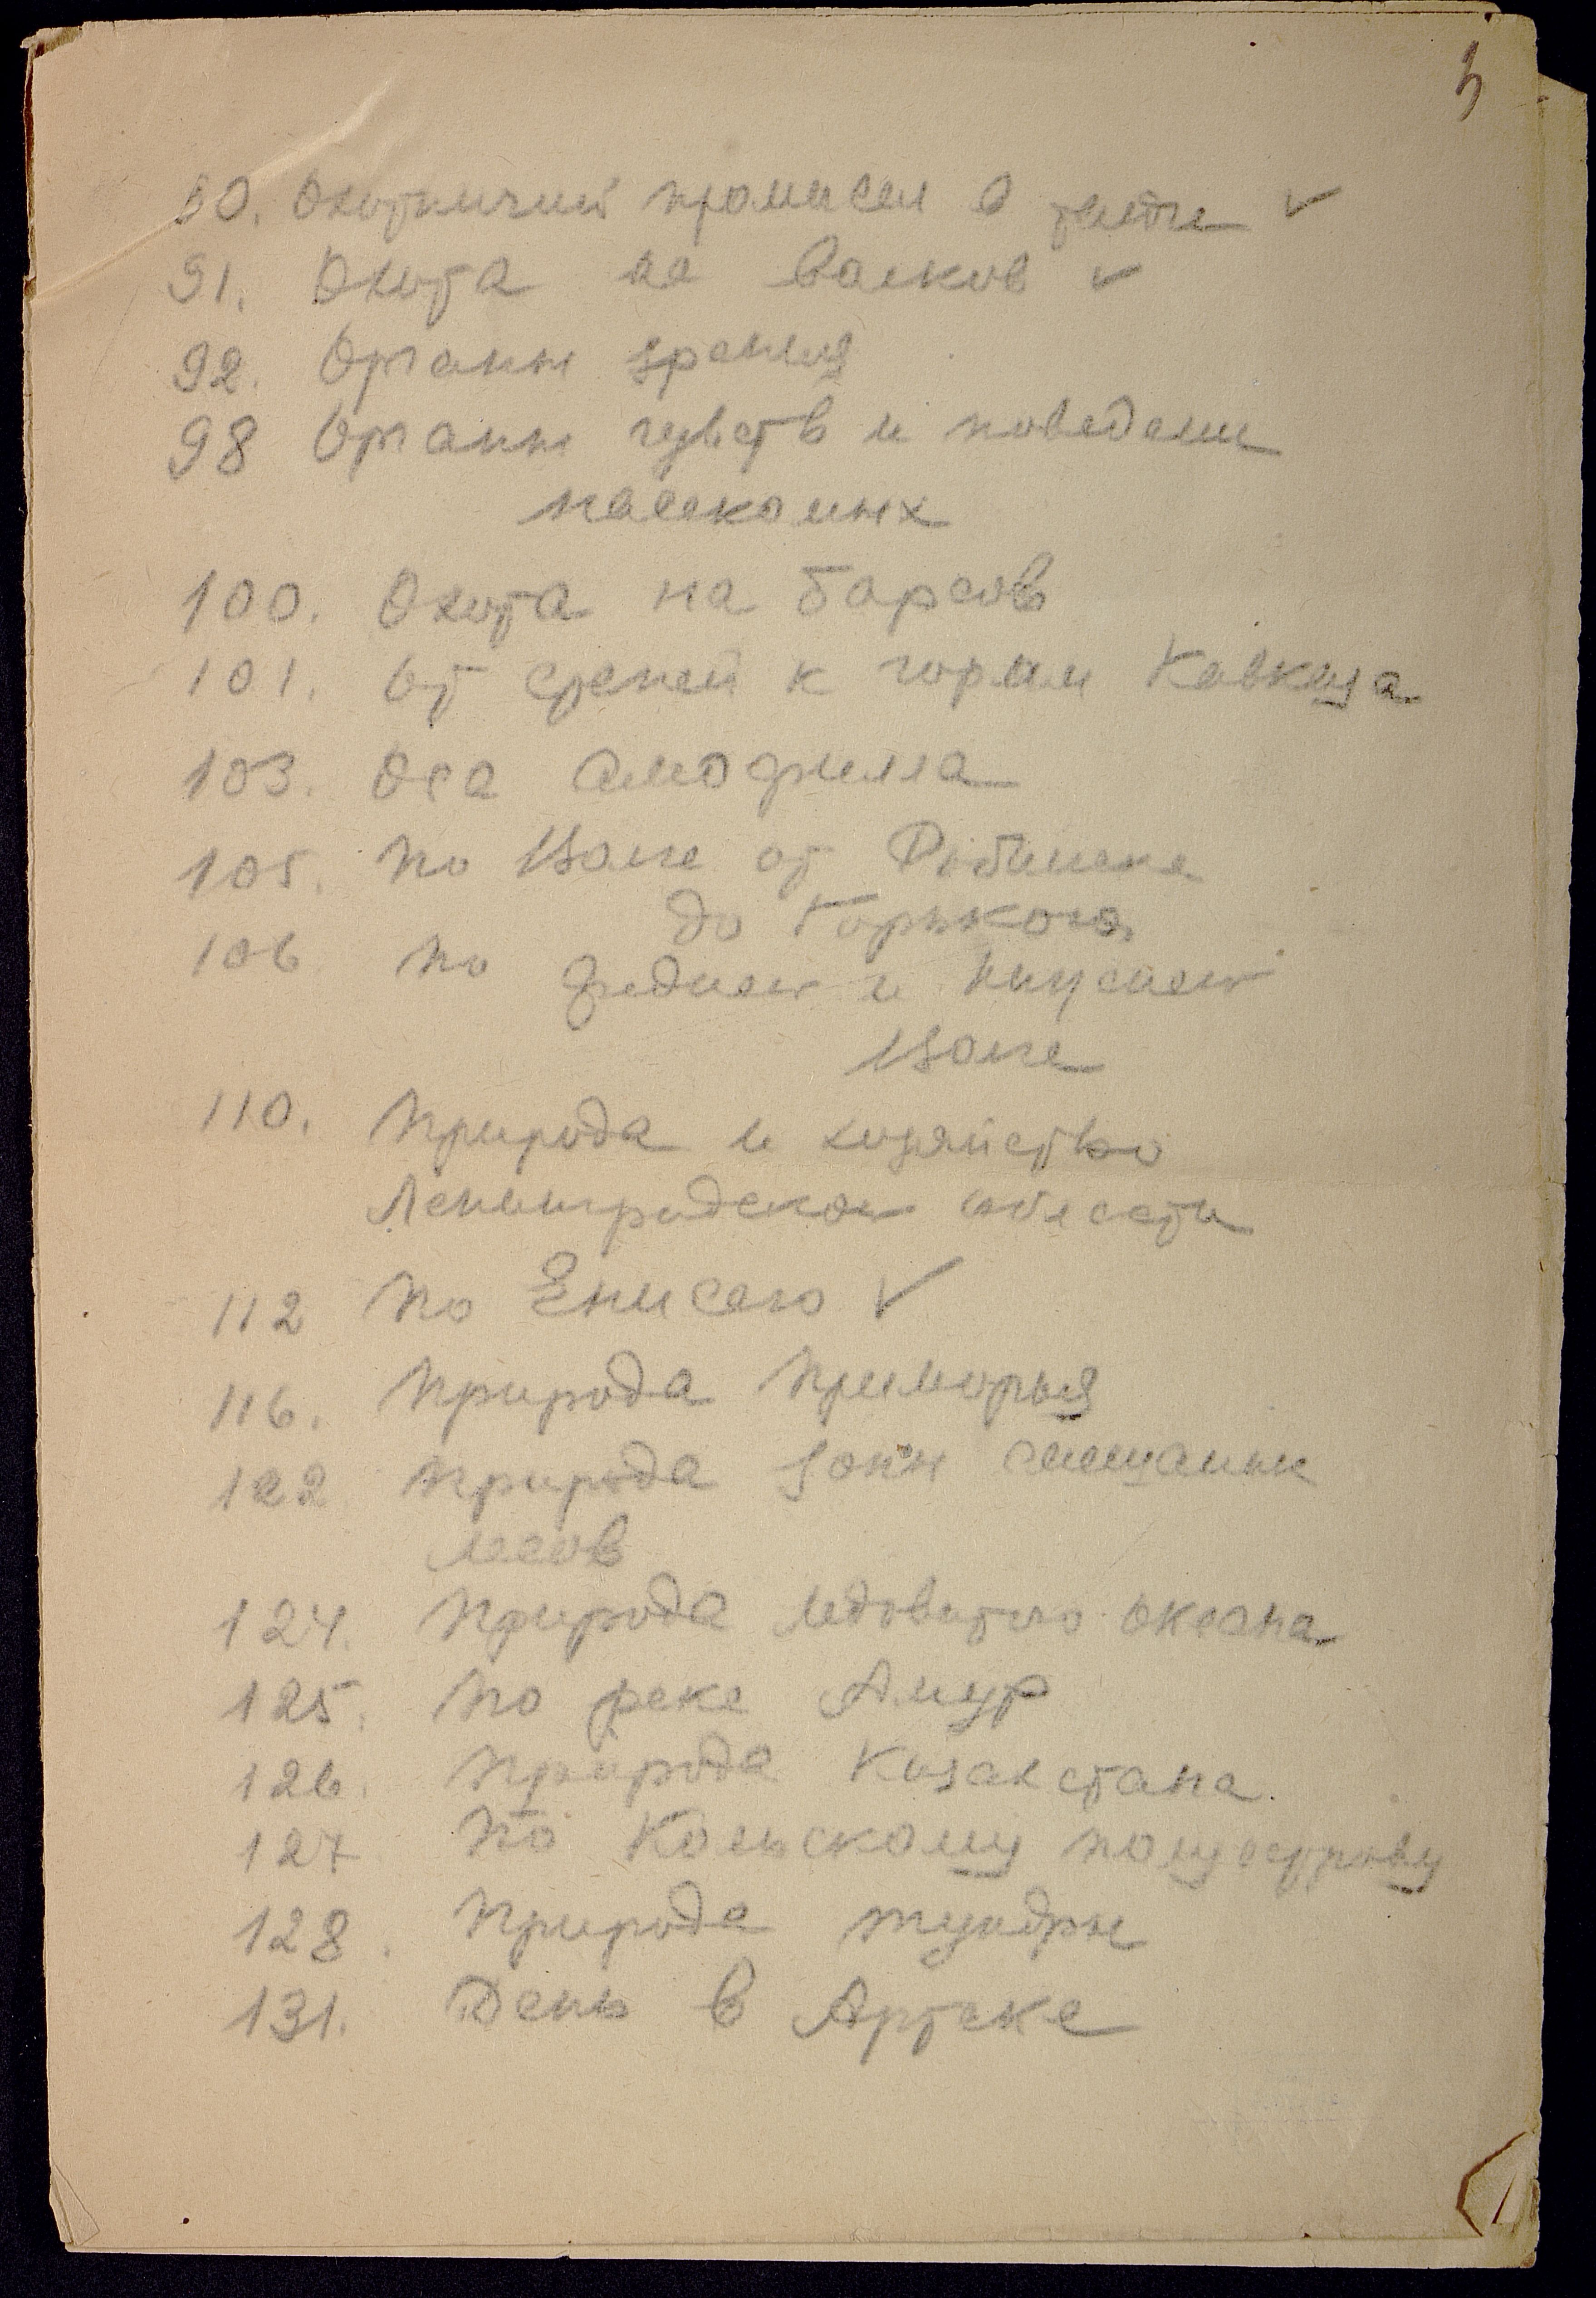 5
90. Охотничий промысел в тайге ✓
91. Охота на волков ✓
92. Органы зрения
98 Органы чувств и поведение
насекомых
100. Охота на барсов
101. От степей к горам Кавказа
103. Оса амофилла
105. По Волге от Рыбинска
до Горького
106 По средней и нижней
Волге
110. Природа и хозяйство
Ленинградской области
112 По Енисею ✓
116. Природа Приморья
122 Природа зоны смешанных
лесов
124. Природа ледовитого океана
125. По реке Амур
126. Природа Казахстана.
127 По Кольскому полуострову
128. Природа тундры
131. День в Артеке